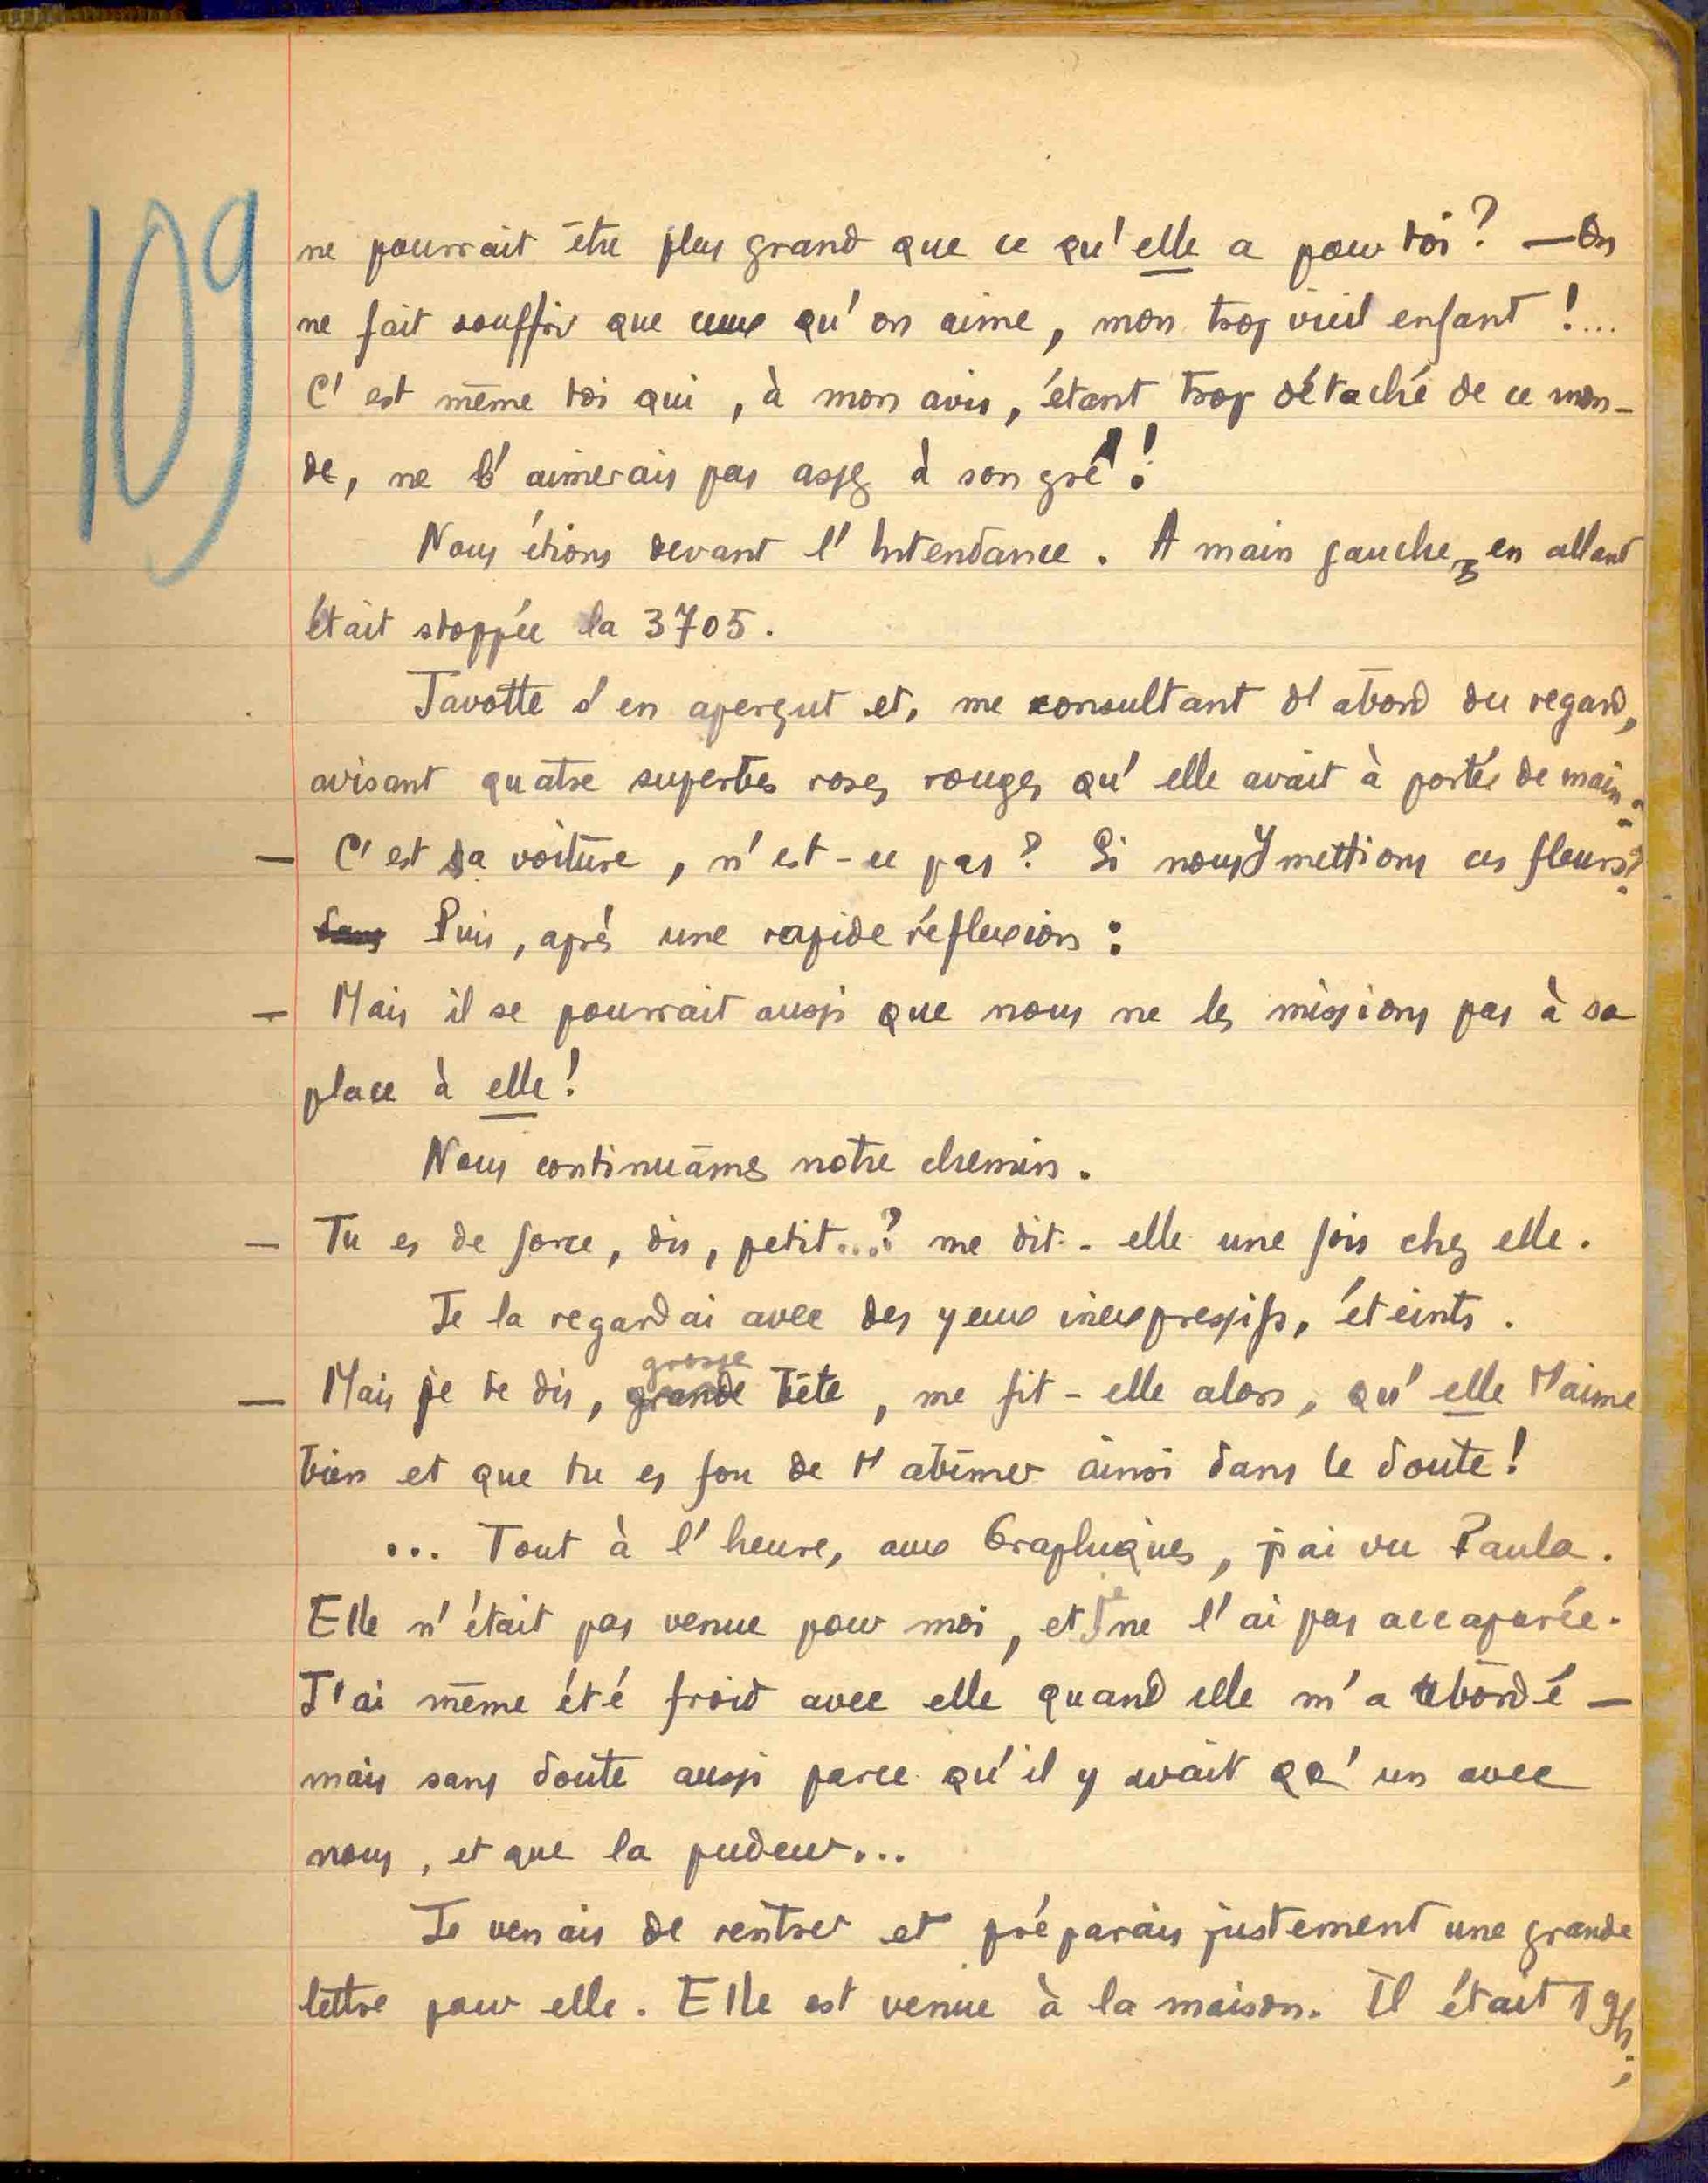 109
ne pourrait être plus grand que ce qu'elle a pour toi ? — On
ne fait souffrir que ceux qu'on aime, mon trop vieil enfant !...
C'est même toi qui, à mon avis, étant trop détaché de ce mon-
de, ne l'aimerais pas assez à son gré !
Nous étions devant l'Intendance. A main gauche, en allant
était stoppée la 3705.
Tavotte s'en aperçut et, me consultant d'abord du regard,
avisant quatre superbes roses rouges qu'elle avait à portée de main :
— C'est sa voiture, n'est-ce pas ? Si nous y mettions ces fleurs ?
Sans Puis, après une rapide réflexion :
— Mais il se pourrait aussi que nous ne les missions pas à sa
place à elle !
Nous continuâmes notre chemin.
— Tu es de force, dis, petit...? me dit-elle une fois chez elle.
Je la regardai avec des yeux inexpressifs, éteints.
— Mais je te dis, grande grosse bête, me fit-elle alors, qu'elle t'aime
bien et que tu es fou de t'abîmer ainsi dans le doute !
... Tout à l'heure, aux Graphiques, j'ai vu Paula.
Elle n'était pas venue pour moi, et je ne l'ai pas accaparée.
J'ai même été froid avec elle quand elle m'a abordé —
mais sans doute aussi parce qu'il y avait qq'un avec
nous, et que la pudeur...
Je venais de rentrer et préparais justement une grande
lettre pour elle. Elle est venue à la maison. Il était 19h.;